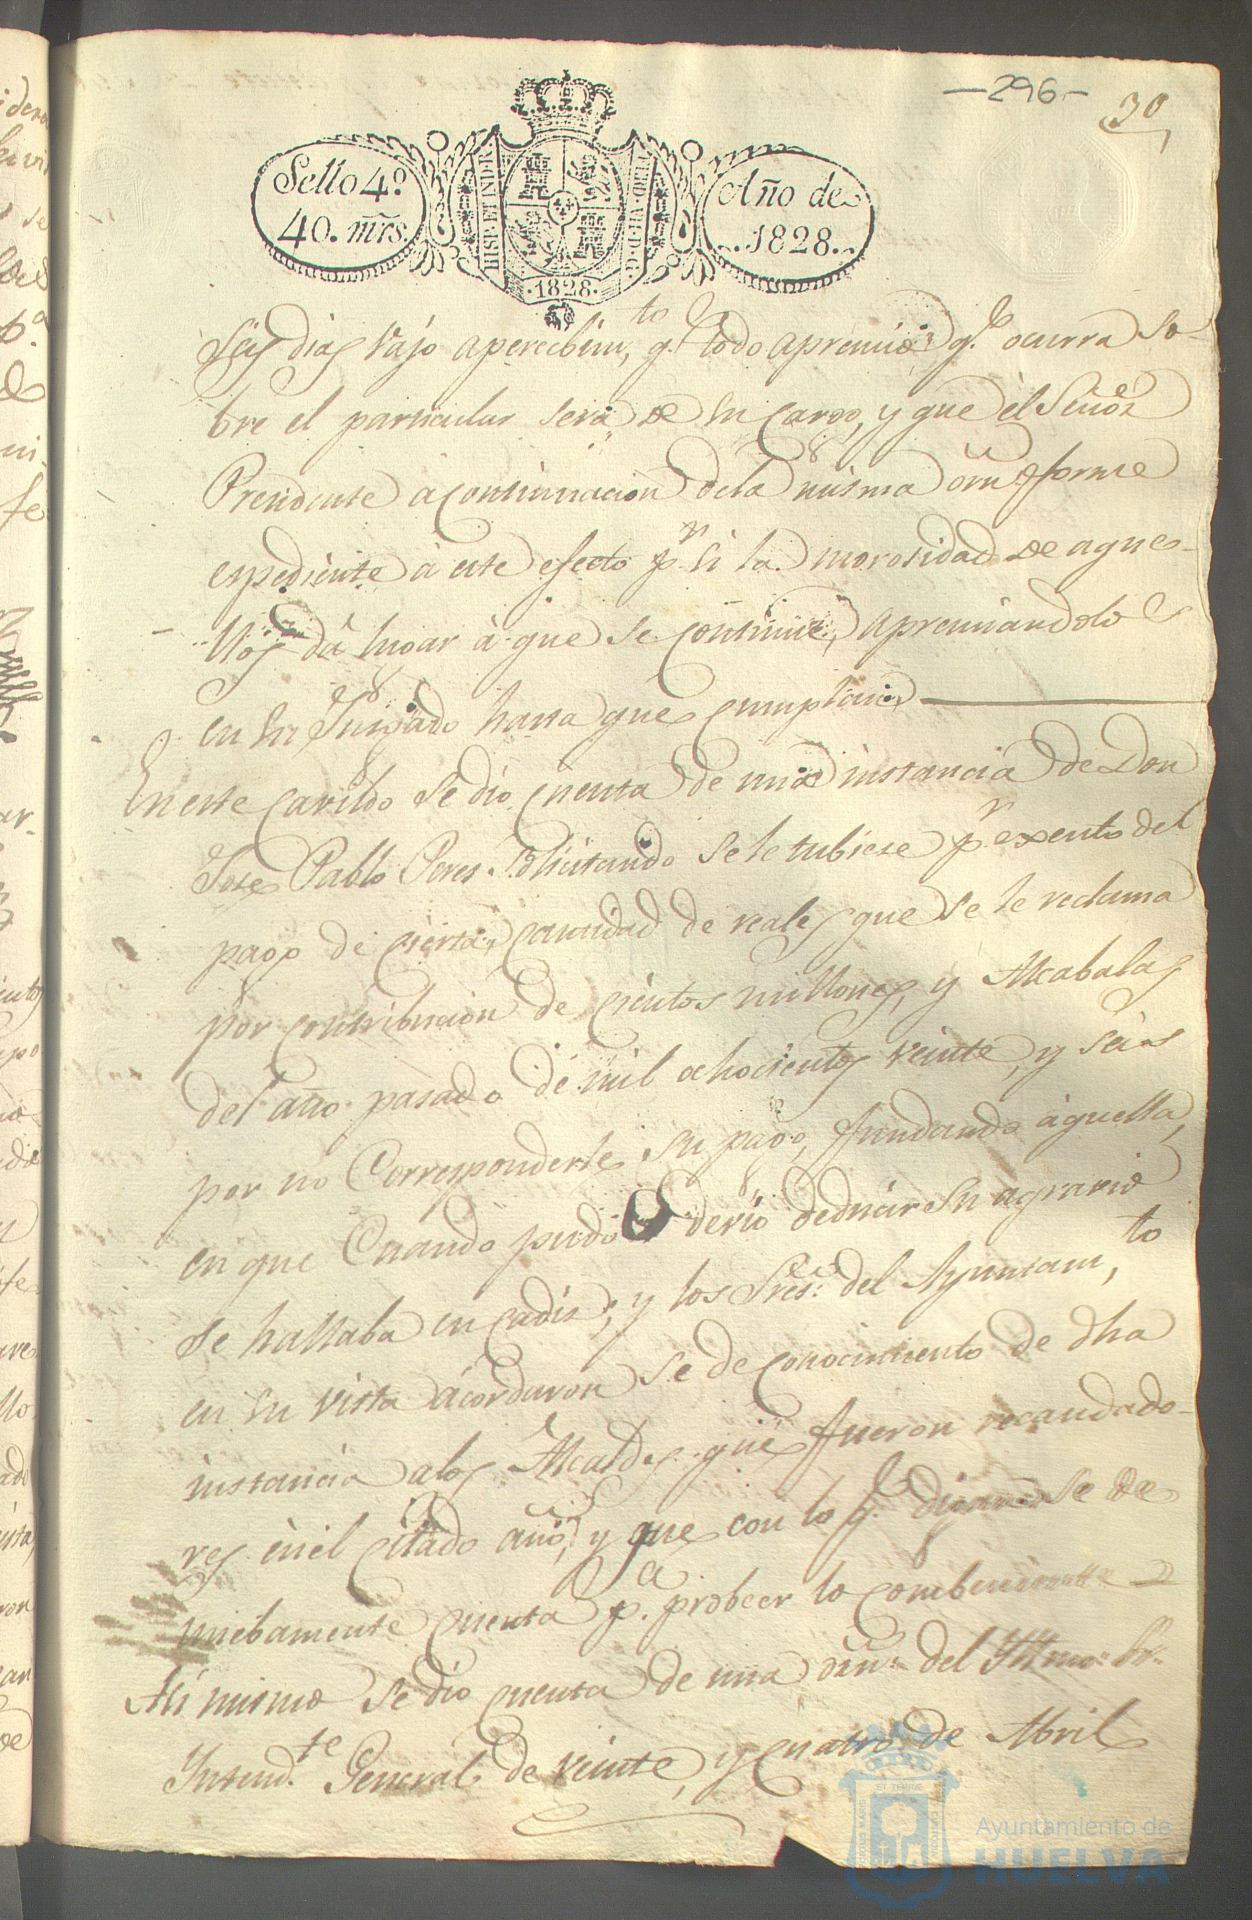 —296—
30
Sello 4.º
40. mrs.
HISP. ET IND. R.
FERD. VII. D. G.
·1828·
Año de
1828.
seis dias vajo apercibim,to q.e todo apremio q.e ocurra so-
bre el particular será de su cargo, y que el Señor
Presidente á continuacion dela misma orn forme
espediente á este efecto p.r si la morosidad de aque-
llos dá lugar á que se continue, apremiandolos
en su Juzgado hasta que cumplan
En este Cavildo se dio cuenta de una instancia de Don
Jose Pablo Peres solicitando se le tubiese p.r exento del
pago de cierta cantidad de reales que se le reclama
por contribucion de cientos millones, y Alcabalas
del año pasado de mil ochocientos veinte, y seis
por no Corresponderle su pago, fundando aquella,
en que Cuando pudo devio deducir su agravio
se hallaba en Cadiz; y los Sres. del Ayuntam,to
en su vista acordaron se de conocimiento de dha
instancia alos Alcaldes que fueron recaudado-
res en el citado año, y que con lo q.e digan se de
nuebamente cuenta p.a probeer lo combeniente
Asi mismo se dio cuenta de una orn. del Yltmo. Sr.
Intend.te General de veinte, y cuatro de Abril
Ayuntamiento de
HUELVA